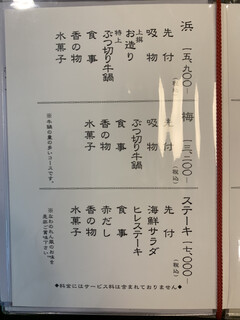 浜 一五、九〇〇― (税込)
先付
吸物
上撰 お造り
特上 ぶつ切り牛鍋
食事
香の物
水菓子
梅 一三、二〇〇― (税込)
先付
吸物
ぶつ切り牛鍋
食事
香の物
水菓子
※牛鍋の量の多いコースです。
ステーキ 一七、〇〇〇― (税込)
先付
海鮮サラダ
ヒレステーキ
赤だし
食事
香の物
水菓子
※なわのれん風のお味を
是非ご賞味下さい。
◆料金にはサービス料は含まれておりません◆